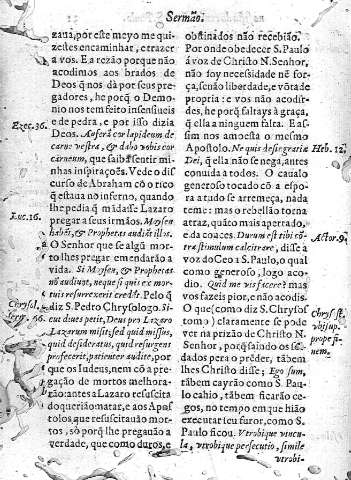 Sermão.
zaua, por este meyo me qui-
zestes encaminhar, e trazer
a vos. E a rezão porque não
acodimos aos brados de
Deos q̃ nos dà por seus pre-
gadores, he porq̃ o Demo-
nio nos tem feito insensiueis
e de pedra, e por isso dizia
Deos. Auferã cor lapideum de
carne vestra, & dabo vobis cor
carneum, que saibã sentir mi-
nhas inspirações. Vede o dis
curso de Abraham cõ o rico
q̃ estaua no inferno, quando
lhe pedia q̃ mãdasse Lazaro
pregar a seus irmãos. Moysen
habẽt, & Prophetas audiãt illos.
O Senhor que se algũ mor-
to lhes pregar emendarão a
vida. Si Moysen, & Prophetas
nõ audiunt, neque si quis ex mor-
tuis resurrexerit credẽt. Pelo q̃
diz S. Pedro Chrysologo. Si-
cut dues petit, Deus pro Lazaro
Lazarum misit; sed quid missus,
quid desideratus, quid resurgent
profecerit, patienter audite, por
que os Iudeus, nem cõ a pre-
gação de mortos melhora-
rão: antes a Lazaro resuscita
do querião matar, e aos Apos
tolos que resuscitauão mor-
tos, só porq̃ lhe pregauão a
verdade, que como duros, e
Ezec. 36.
Luc. 16.
Chrysol.
serm. 66.
obstinados não recebião.
Por onde obedecer S. Paulo
á voz de Christo N. Senhor,
não foy necessidade nẽ for-
ça, senão liberdade, e võtade
propria: e vos não acodis,
he porq̃ faltays à graça,
q̃ ella a ninguem falta. E as-
sim nos amoesta o mesmo
Apostolo. Ne quis desit gratiæ
Dei, q̃ ella não se nega, antes
conuida a todos. O caualo
generoso tocado cõ a espo-
ra a tudo se arremeça, nada
teme: mas o rebellão torna
atraz, quão mais apertado,
e da coaces. Durum est tibi cõ-
tra stimulum calcitrare, disse a
voz do Ceo a S. Paulo, o qual
como generoso, logo aco-
dio. Quid me vis facere? mas
vos fazeis pior, enão acodis.
O que (como diz S. Chrysos
tomo) claramente se pode
ver na prizão de Christo N.
Senhor, porq̃ saindo os sol-
dados pera o prẽder, tãbem
lhes Christo disse; Ego sum,
tãbem cayrão como S. Pau-
lo cahio, tambem ficarão ce-
gos, no tempo em que hião
executar seu furor, como S.
Paulo ficou. Vtrobique vincu-
la, vtrobique persecutio, simile
vtrobi-
Heb. 12.
Actor. 9.